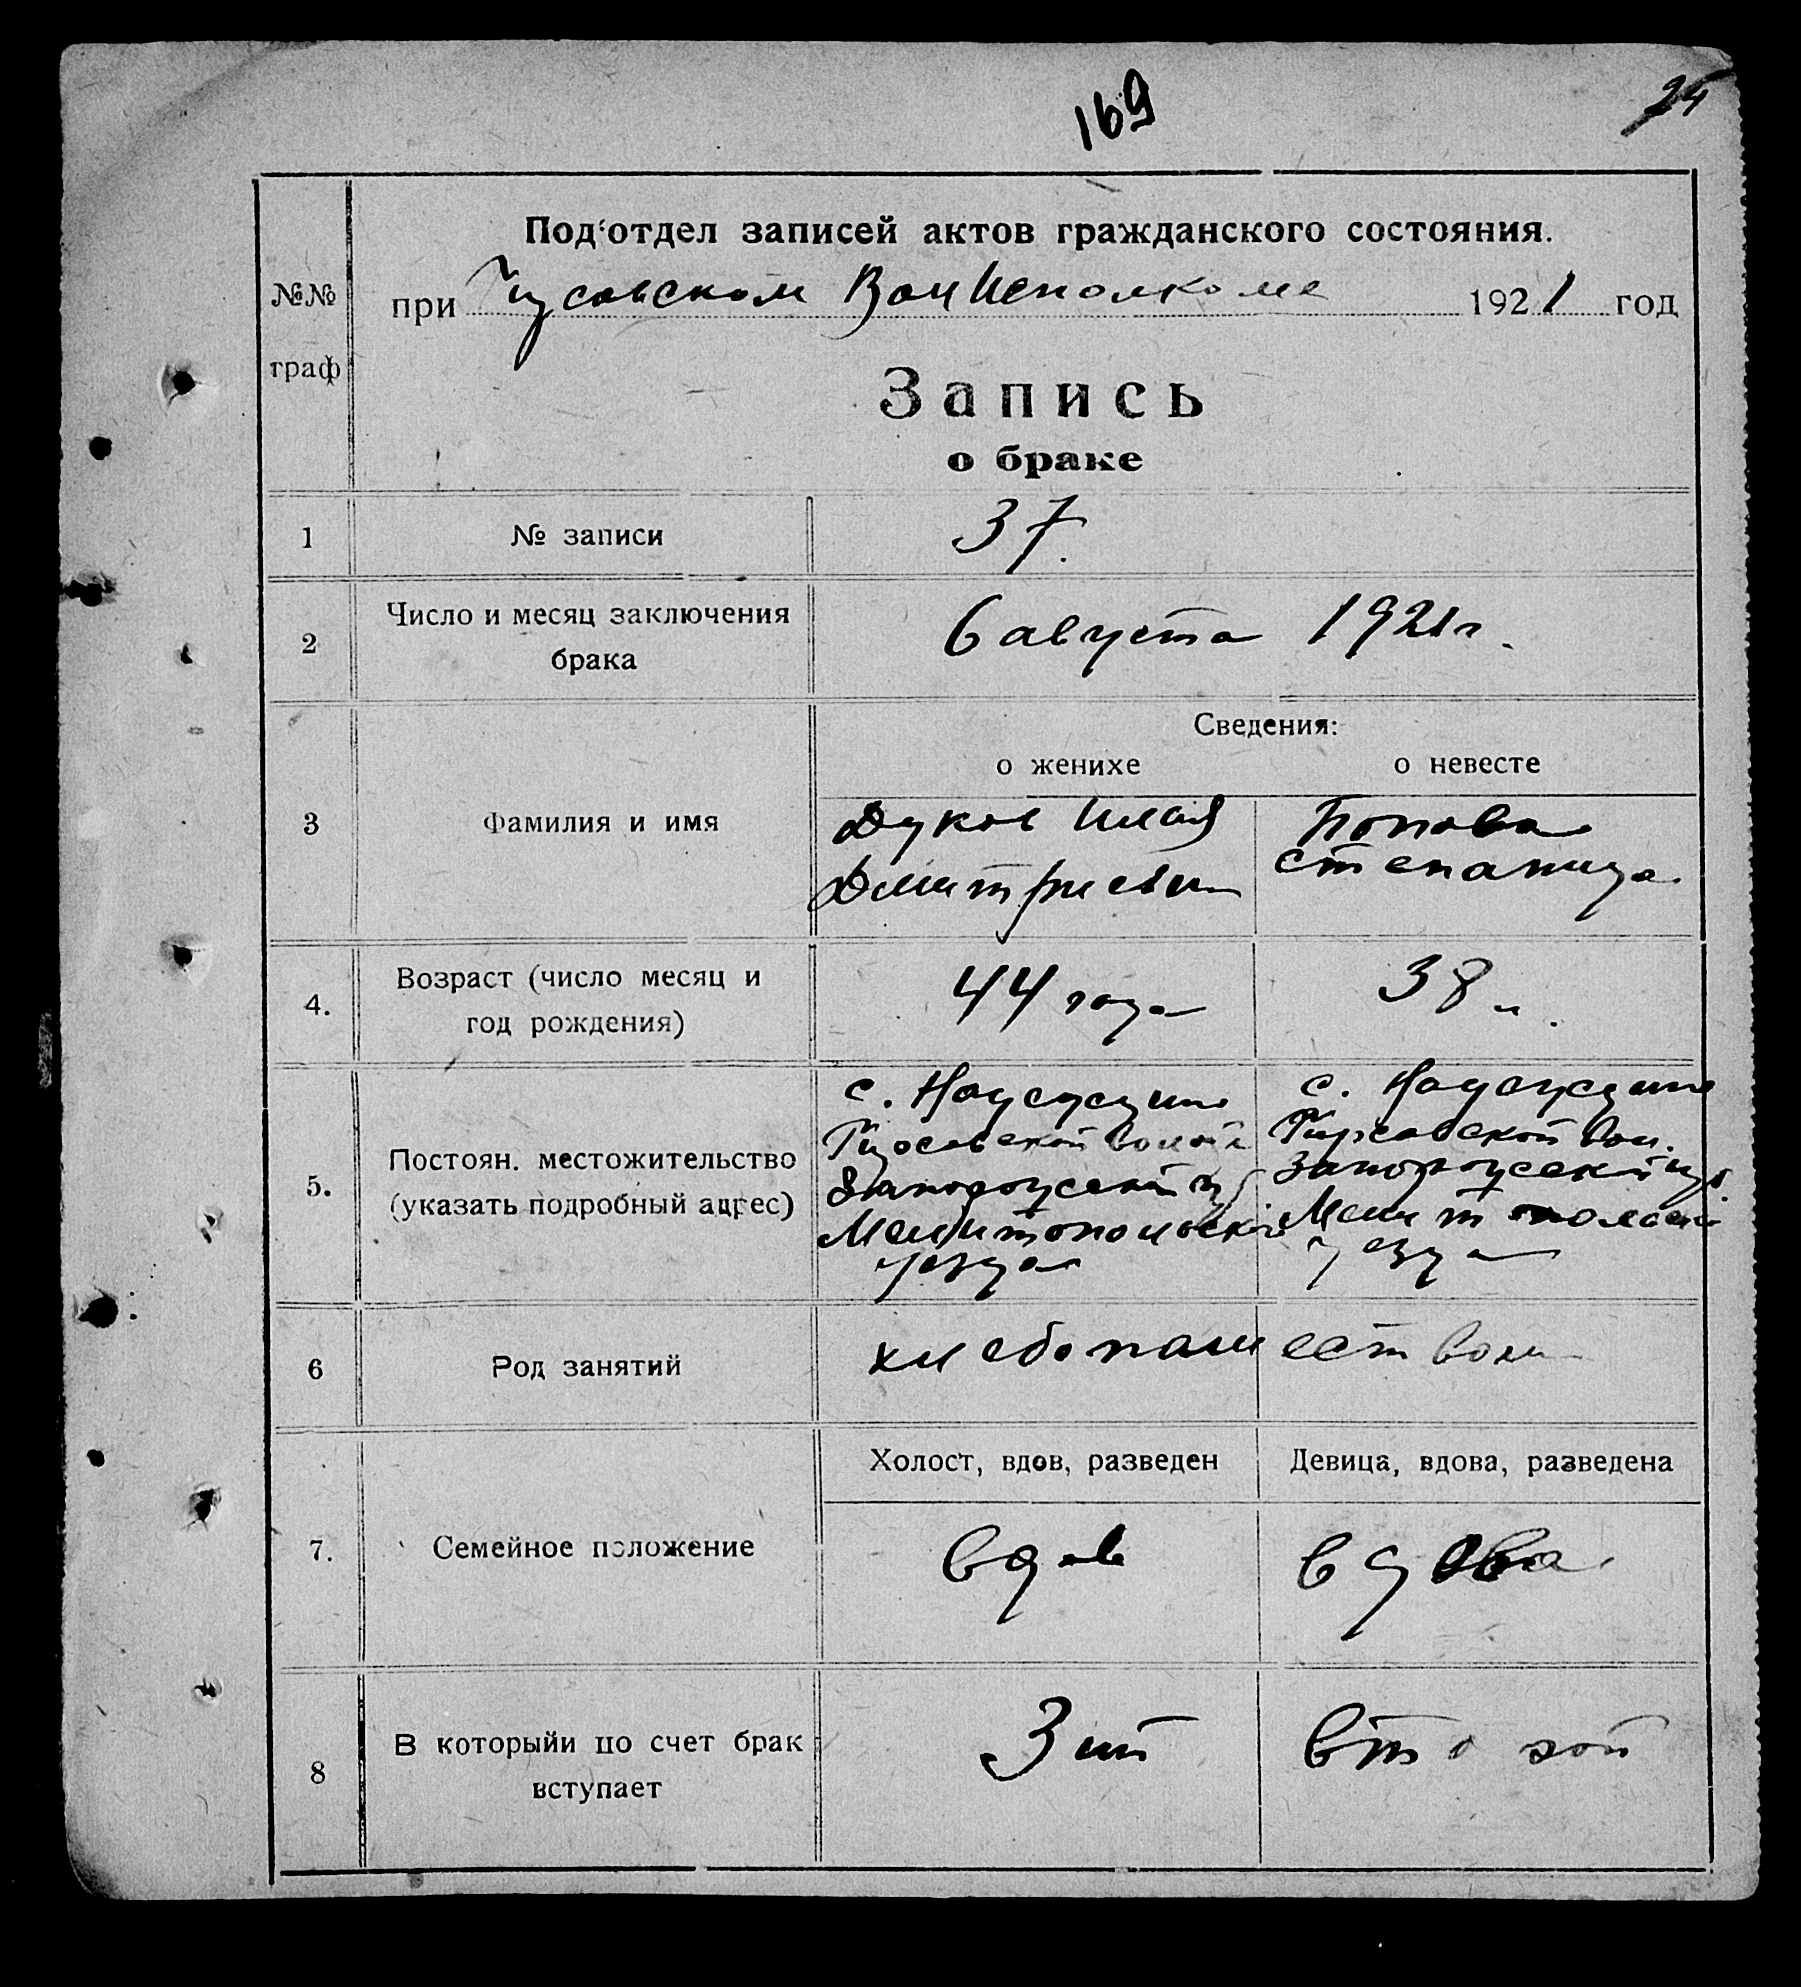 169
24
Под'отдел записей актов гражданского состояния.
№№
граф
при Гирсовском Волисполкоме 1921 год
Запись
о браке
1 № записи 37.
2 Число и месяц заключения
брака
6 августа 1921 г.
Сведения:
о женихе о невесте
3 Фамилия и имя
Дуков Илья
Дмитриевич
Попова
Степанида
4. Возраст (число месяц и
год рождения)
44 года
38 л.
5. Постоян. местожительство
(указать подробный адрес)
с.
Гирсовской волости
Запорожской губ
Мелитопольского
уезда
с.
Гирсовской вол.
Запорожской губ.
Мелитопольского
уезда
6 Род занятий хлебопашеством
Холост, вдов, разведен Девица, вдова, разведена
7. Семейное положение вдов вдова
8 В которыйи по счет брак
вступает
3 ий второй